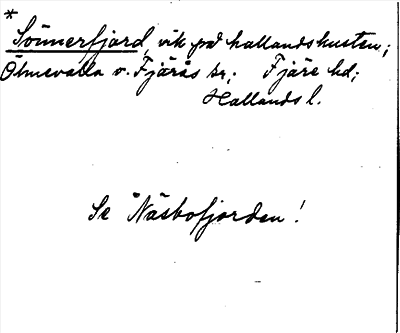 *
Sönnerfjord, vik på hallandskusten;
Ölmevalla o. Fjärås sr; Fjäre hd;
Hallands l.
Se Näsbofjorden!